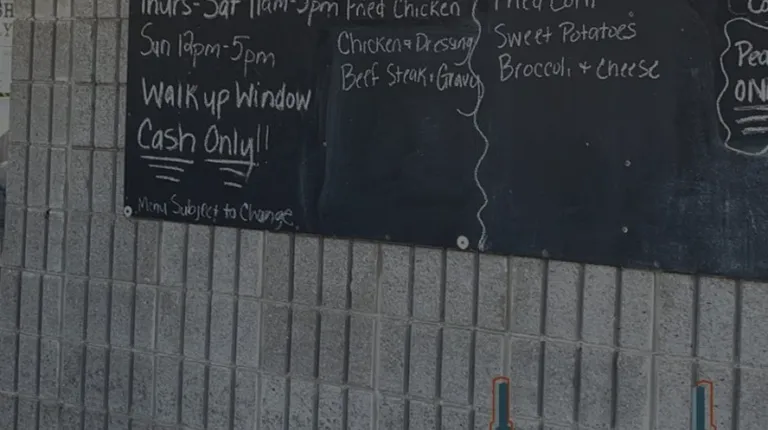 Thurs-Sat 11am-5pm
Sun 12pm-5pm
Walk up Window
Cash Only!!
Menu Subject to Change
Fried Chicken
Chicken & Dressing
Beef Steak & Gravy
Fried Corn
Sweet Potatoes
Broccoli + Cheese